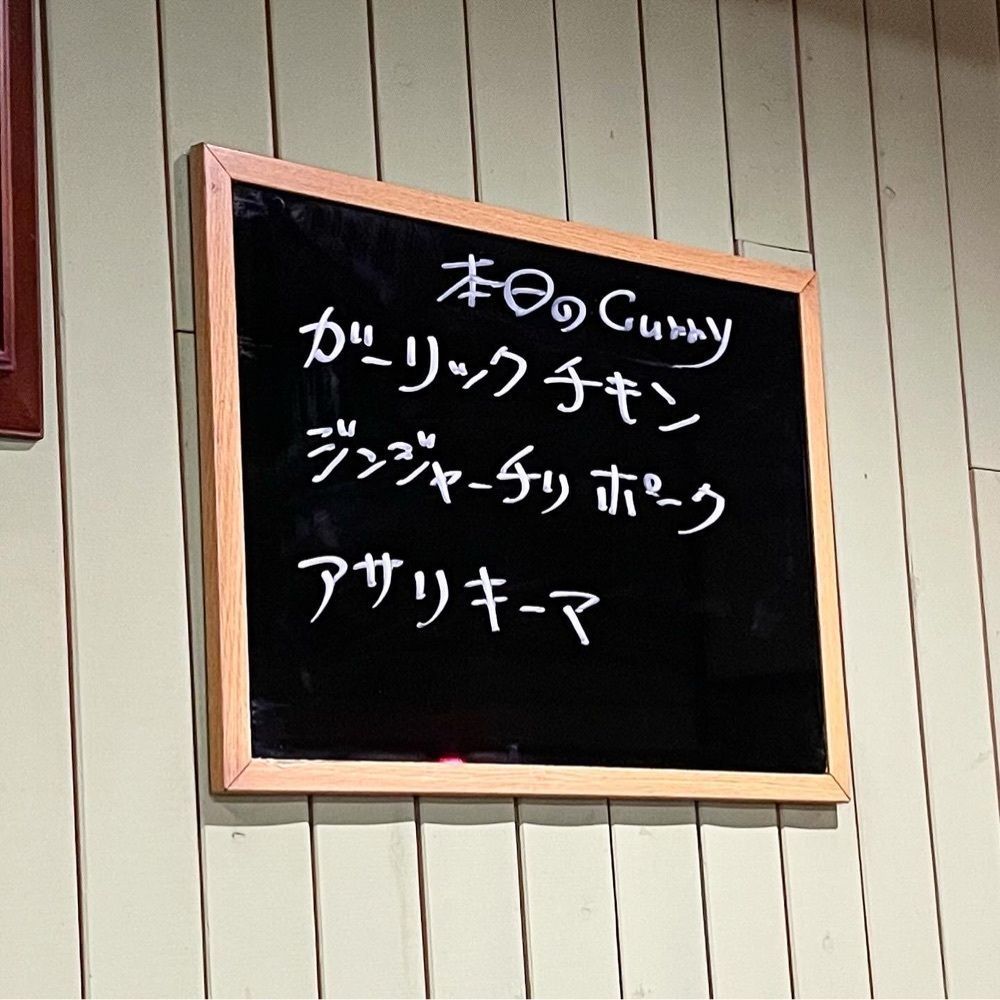 本日のCurry
ガーリック チキン
ジンジャーチリ ポーク
アサリキーマ